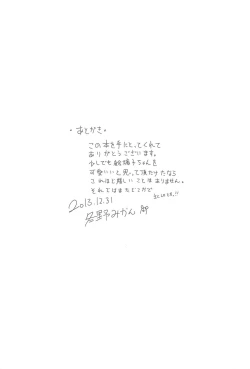 ・あとがき・
この本を手にとってくれて
ありがとうございます。
少しでも絵瑠子ちゃんを
可愛いいと思って頂けたなら
これほど嬉しいことはありません。
それではまたどこかで
2013.12.31
みかん